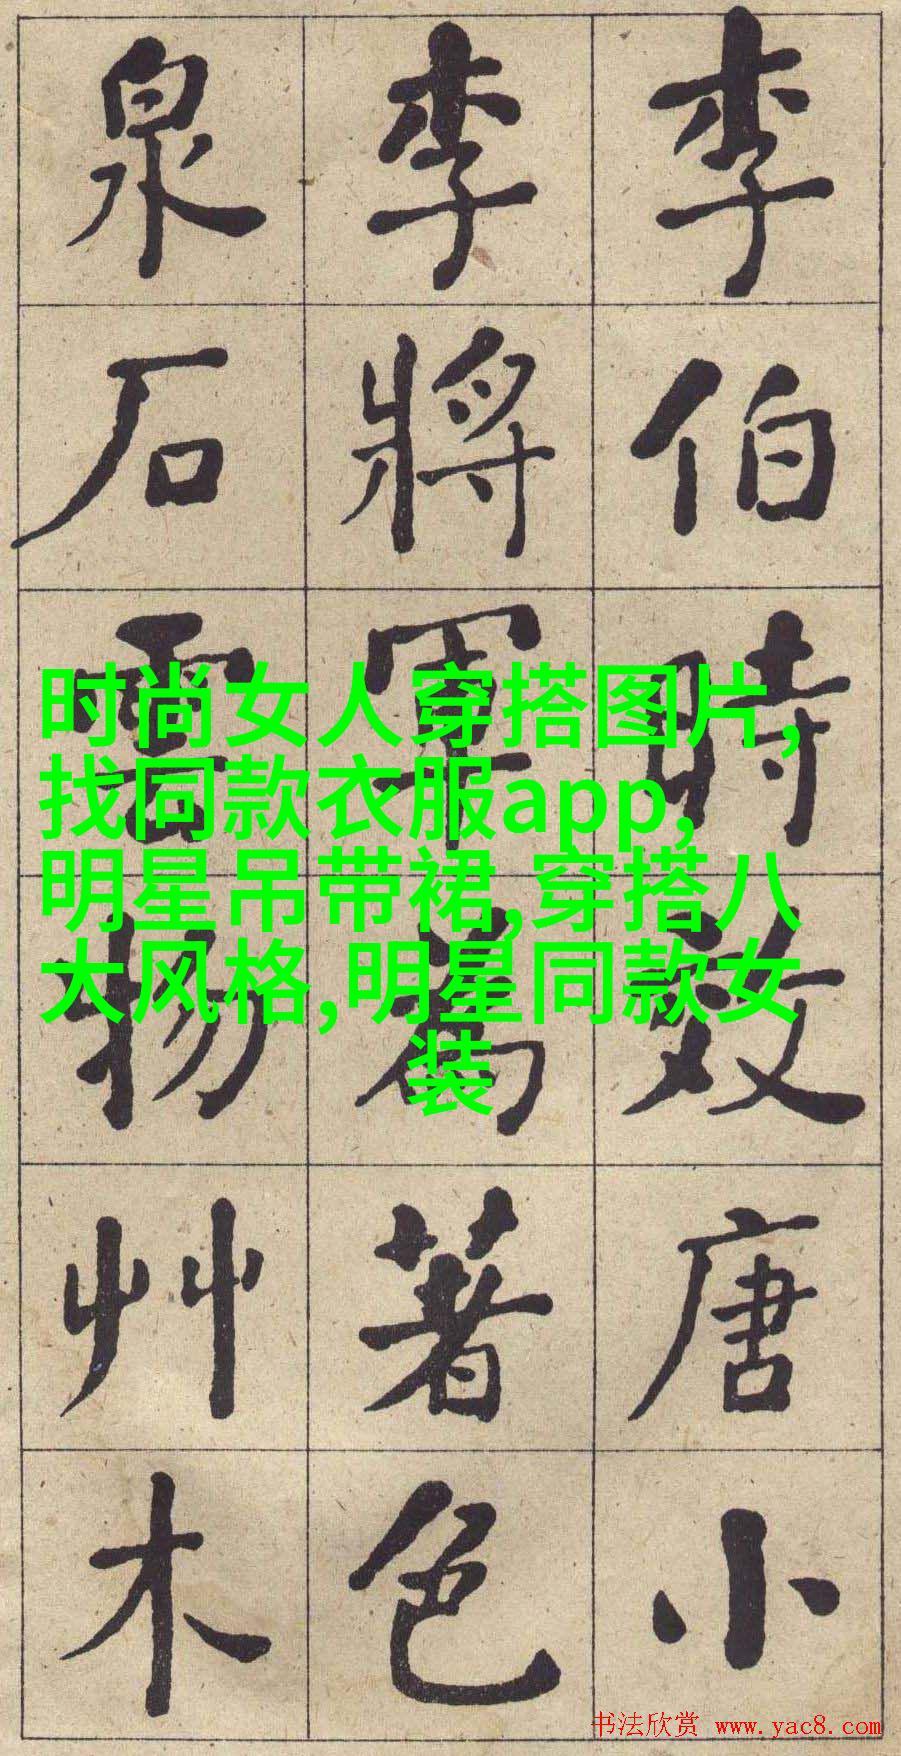 李伯時效唐小
李將軍為著色
泉石雲物艸木
时尚女人穿搭图片,
找同款衣服app,
明星吊带裙,穿搭八
大风格,明星同款女
装
书法欣赏 www.yac8.com